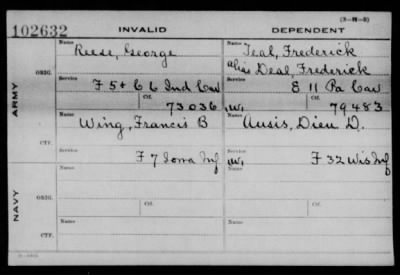 (3-H-3)
102632 INVALID DEPENDENT
Name Name
Reese, George Teal, Frederick
alias Deal, Frederick
ORIG. Service Service
F 5 + C 6 Ind Cav E 11 Pa Cav
Ctf. Ctf.
73036 W. 79483
ARMY
Name Name
Wing, Francis B Ausis, Dieu D.
CTF. Service Service
F 7 Iowa Inf W. F 32 Wis Inf
Name Ctf. Name Ctf.
ORIG.
NAVY
Name Name
CTF.